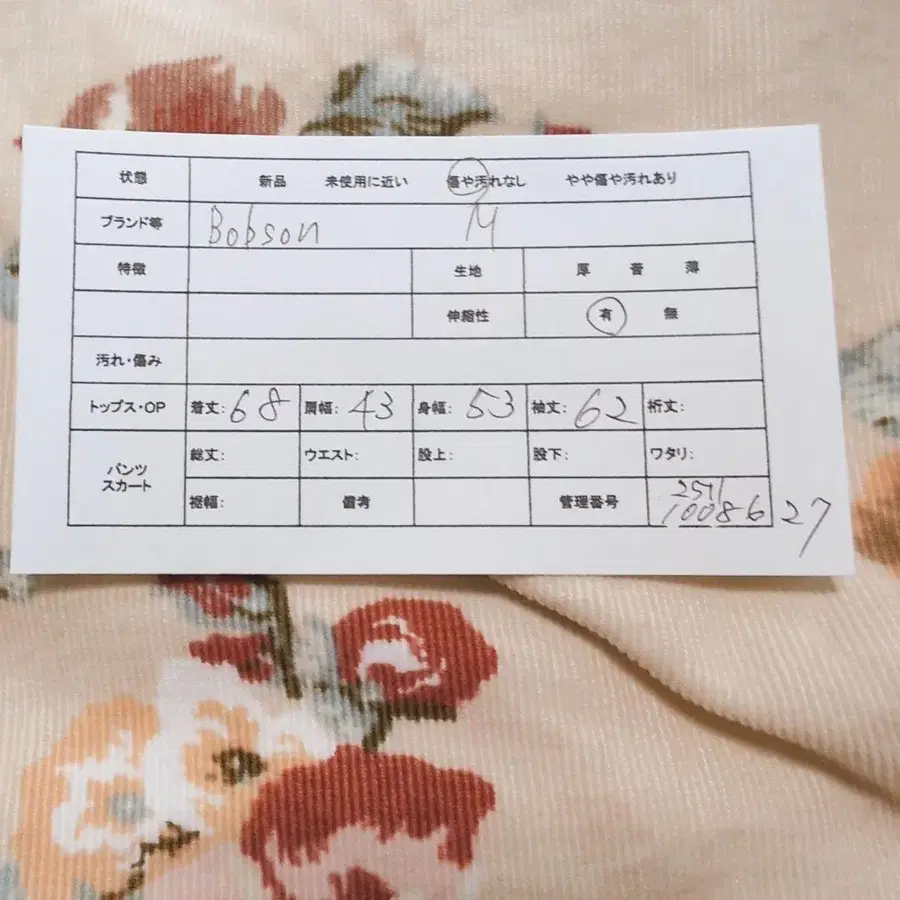 状態 新品 未使用に近い 傷や汚れなし やや傷や汚れあり
ブランド等 Bobson M
特徴 生地 厚 普 薄
伸縮性 有 無
汚れ・傷み
トップス・OP 着丈:68 肩幅:43 身幅:53 袖丈:62 裄丈:
パンツ
スカート
総丈: ウエスト: 股上: 股下: ワタリ:
裾幅: 備考 管理番号
10086 27